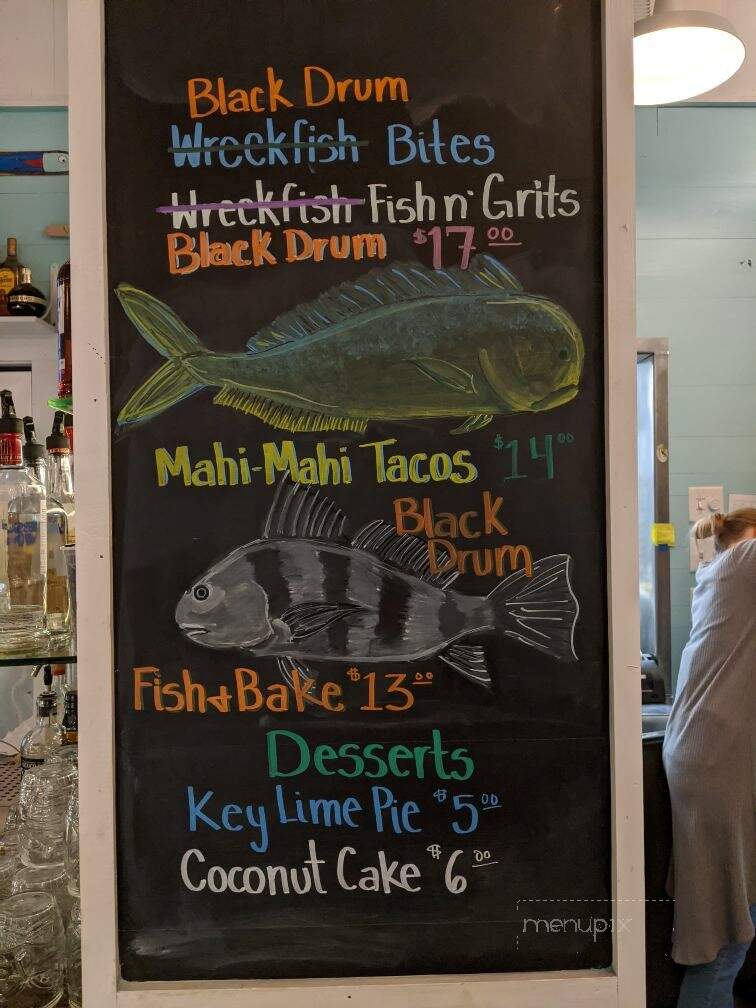 Black Drum
Wreckfish Bites
Wreckfish Fish n' Grits
Black Drum $17.00
Mahi-Mahi Tacos $14.00
Black
Drum
Fish + Bake $13.00
Desserts
Key Lime Pie $5.00
Coconut Cake $6.00
menupix